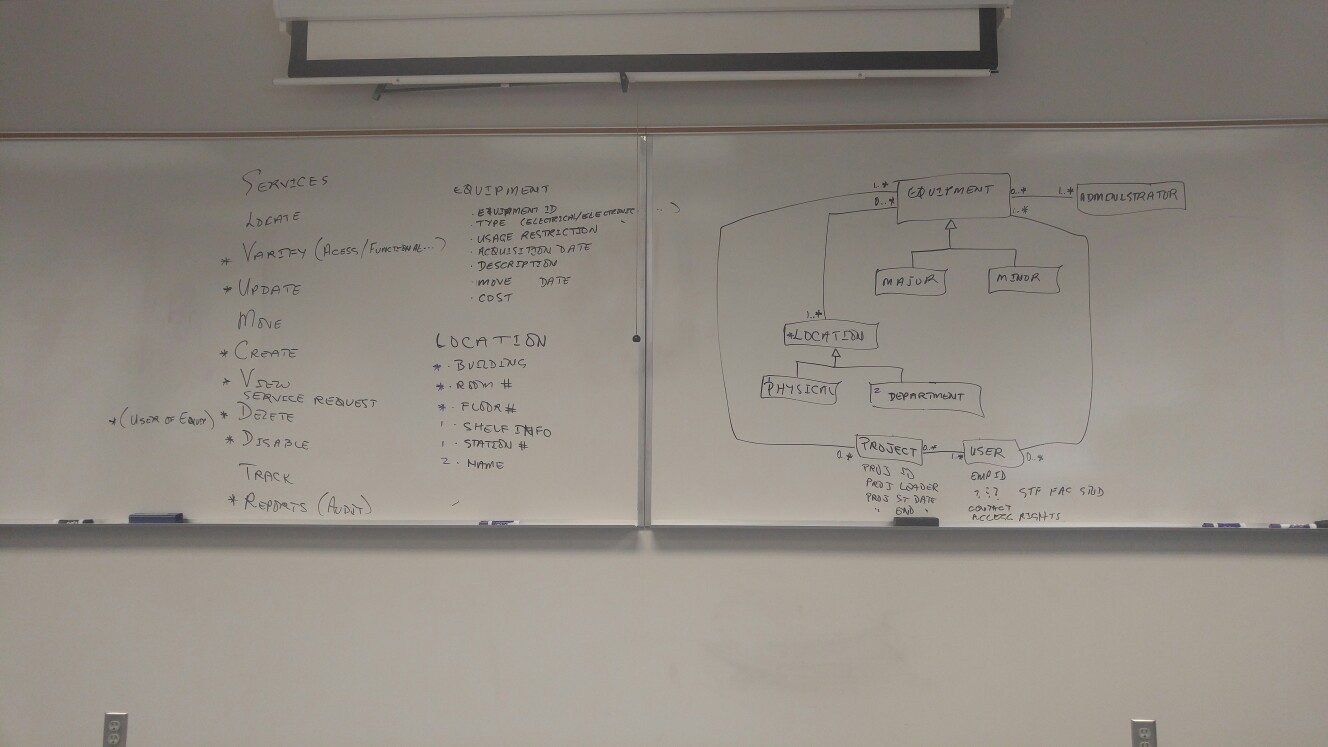 SERVICES
LOCATE
* VARIFY (ACESS/FUNCTIONAL...)
* UPDATE
MOVE
* CREATE
* VIEW
SERVICE REQUEST
*(USER OF EQUIP) * DELETE
* DISABLE
TRACK
* REPORTS (AUDIT)
EQUIPMENT
· EQUIPMENT ID
· TYPE (ELECTRICAL/ELECTRONIC ...)
· USAGE RESTRICTION
· ACQUISITION DATE
· DESCRIPTION
· MOVE DATE
· COST
LOCATION
* · BUILDING
* · ROOM #
* · FLOOR #
1 · SHELF INFO
1 · STATION #
2 · NAME
1..* EQUIPMENT 0..* 1..* ADMINISTRATOR
0..* 1..*
MAJOR MINOR
1..*
*LOCATION
1 PHYSICAL 2 DEPARTMENT
0..* PROJECT 0..* 1..* USER 0..*
PROJ ID
PROJ LEADER
PROJ ST DATE
" END "
EMP ID
STF FAC STUD
CONTACT
ACCESS RIGHTS